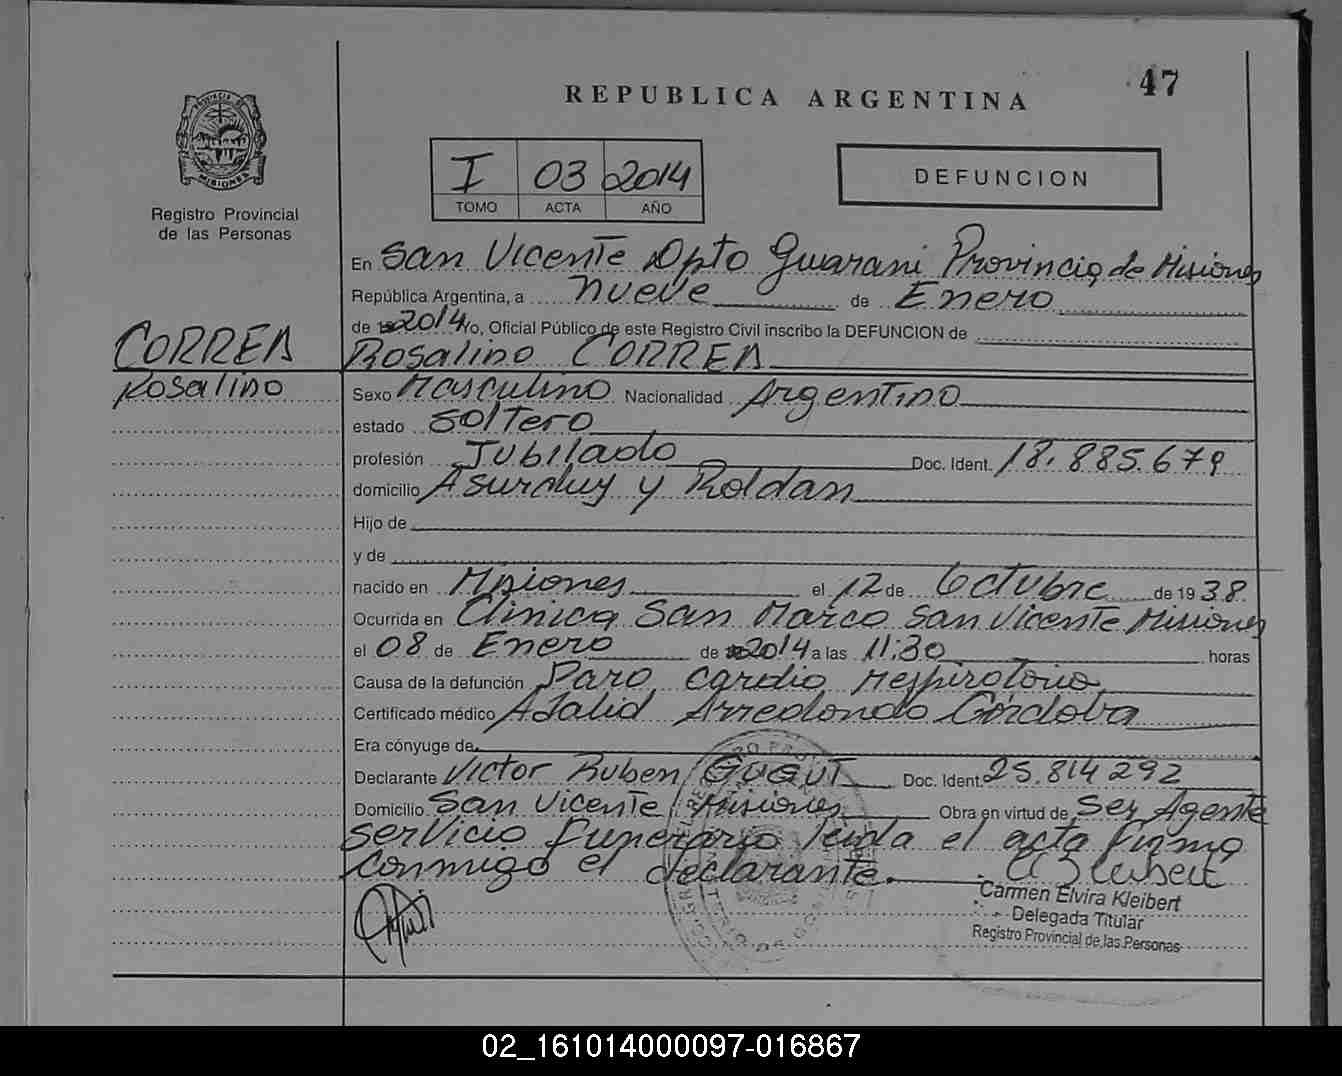 47
REPUBLICA ARGENTINA
PROVINCIA DE
MISIONES
Registro Provincial
de las Personas
I 03 2014
TOMO ACTA AÑO
DEFUNCION
En San Vicente Dpto Guarani Provincia de Misiones
República Argentina, a nueve de Enero
de 2014 yo, Oficial Público de este Registro Civil inscribo la DEFUNCION de
CORREA
Rosalino CORREA
Rosalino
Sexo Masculino Nacionalidad Argentino
estado Soltero
profesión Jubilado Doc. Ident. 18.885.679
domicilio Asurduy y Roldan
Hijo de
y de
nacido en Misiones el 12 de Octubre de 1938
Ocurrida en Clinica San Marco San Vicente Misiones
el 08 de Enero de 2014 a las 11:30 horas
Causa de la defunción Paro cardio respiratorio
Certificado médico Arredondo Cordoba
Era cónyuge de
Declarante Victor Ruben Doc. Ident. 25.814 292
Domicilio San Vicente Misiones Obra en virtud de Ser Agente
Servicio funerario leida el acta firma
conmigo el declarante.
Carmen Elvira Kleibert
Delegada Titular
Registro Provincial de las Personas
02_161014000097-016867